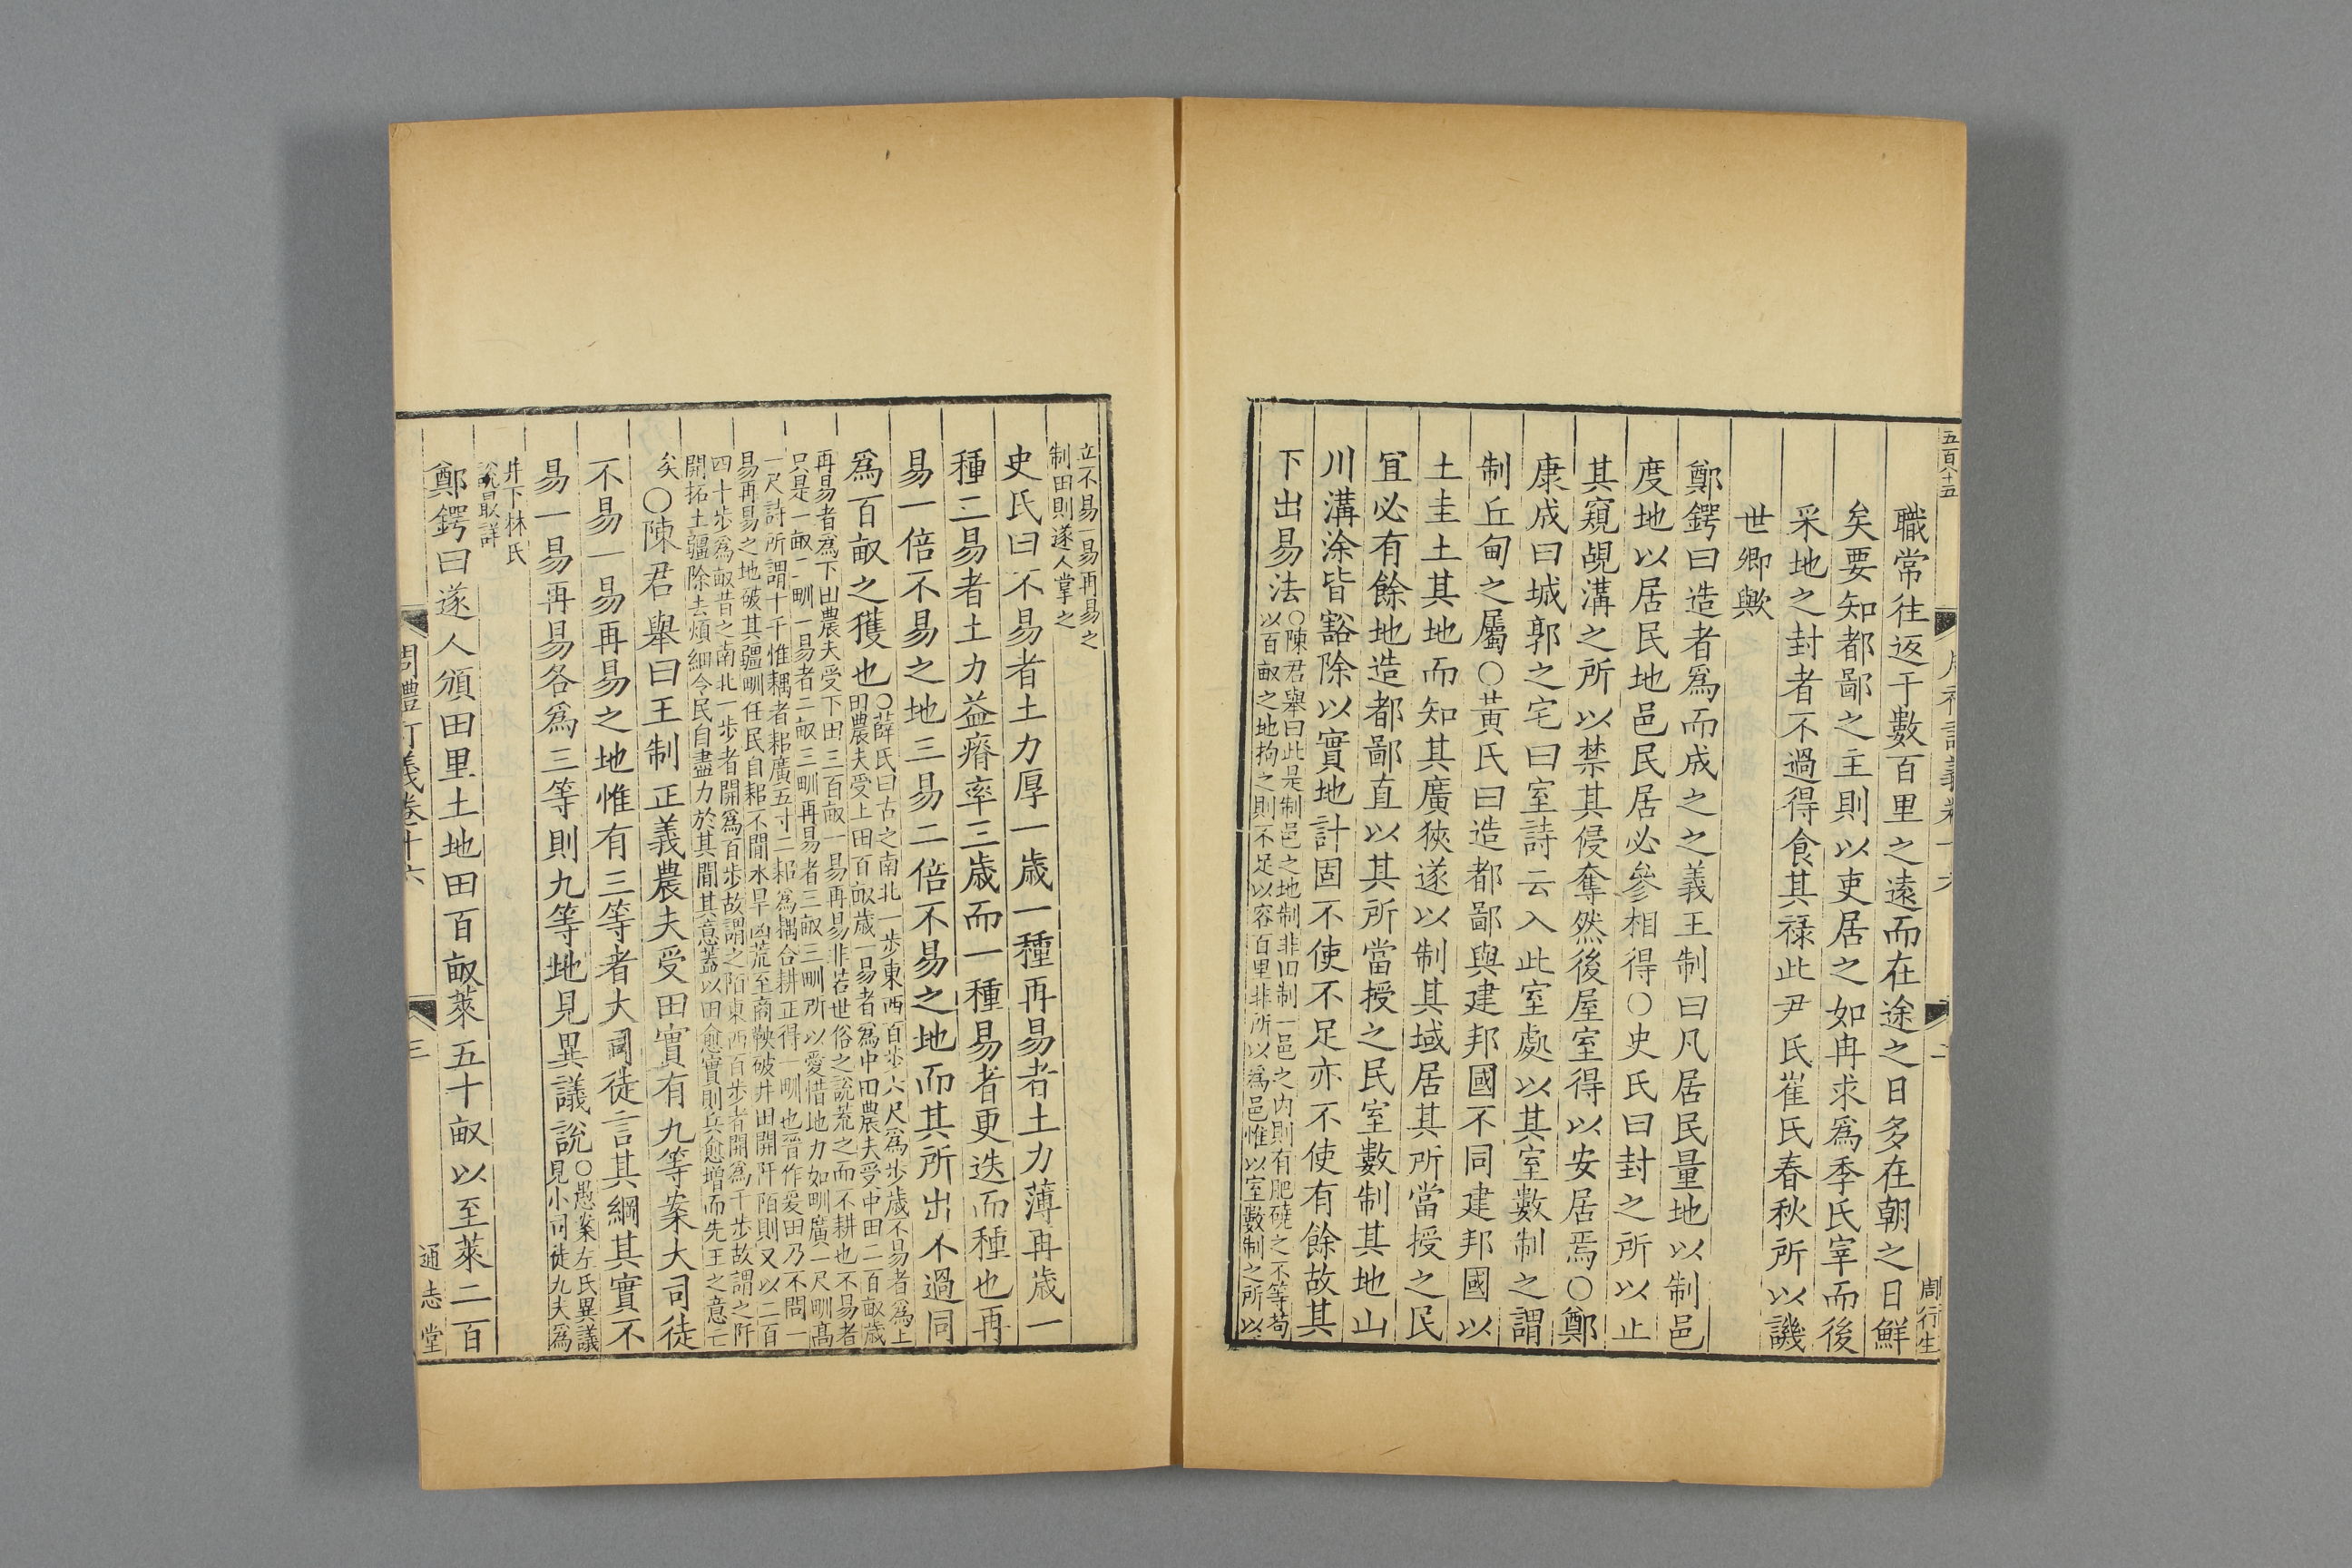 五百八十五
周行生
職常往返干數百里之遠而在途之日多在朝之日鮮
矣要知都鄙之主則以吏居之如冉求為季氏宰而後
采地之封者不過得食其祿此尹氏崔氏春秋所以譏
世卿歟
鄭鍔曰造者為而成之之義王制曰凡居民量地以制邑
度地以居民地邑民居必參相得○史氏曰封之所以止
其窺覘溝之所以禁其侵奪然後屋室得以安居焉○鄭
康成曰城郭之宅曰室詩云入此室處以其室數制之謂
制丘甸之屬○黃氏曰造都鄙與建邦國不同建邦國以
土圭土其地而知其廣狹遂以制其域居其所當授之民
冝必有餘地造都鄙直以其所當授之民室數制其地山
川溝涂皆豁除以實地計固不使不足亦不使有餘故其
下出易法
○陳君舉曰此是制邑之地制非田制一邑之內則有肥磽之不等苟
以百畝之地拘之則不足以容百里非所以為邑惟以室數制之所以
立不易一易再易之
制田則遂人掌之
史氏曰不易者土力厚一歲一種再易者土力薄再歲一
種三易者土力益瘠率三歲而一種易者更迭而種也再
易一倍不易之地三易二倍不易之地而其所出不過同
為百畝之獲也
○薛氏曰古之南北一步東西百步六尺為步歲不易者為上
田農夫受上田百畝歲一易者為中田農夫受中田二百畝歲
再易者為下田農夫受下田三百畝一易再易非若世俗之說荒之而不耕也不易者
只是一畝一甽一易者二畝三甽再易者三畝三甽所以愛惜地力如甽廣一尺甽高
一尺計所謂十千惟耦者耜廣五寸二耜為耦合耕正得一甽也晉作爰田乃不問一
易再易之地破其疆甽任民自耜不間水旱凶荒至商鞅破井田開阡陌則又以二百
四十步為畝昔之南北一步者開為百步故謂之陌東西百步者開為千步故謂之阡
開拓土疆除去煩細令民自盡力於其間其意蓋以田愈實則兵愈增而先王之意亡
矣
○陳君舉曰王制正義農夫受田實有九等案大司徒
不易一易再易之地惟有三等者大司徒言其綱其實不
易一易再易各為三等則九等地見異議說
○愚案左氏異議
見小司徒九夫為
井下林氏
說最詳
鄭鍔曰遂人頒田里土地田百畝萊五十畝以至萊二百
周禮訂義卷十六
三
通志堂